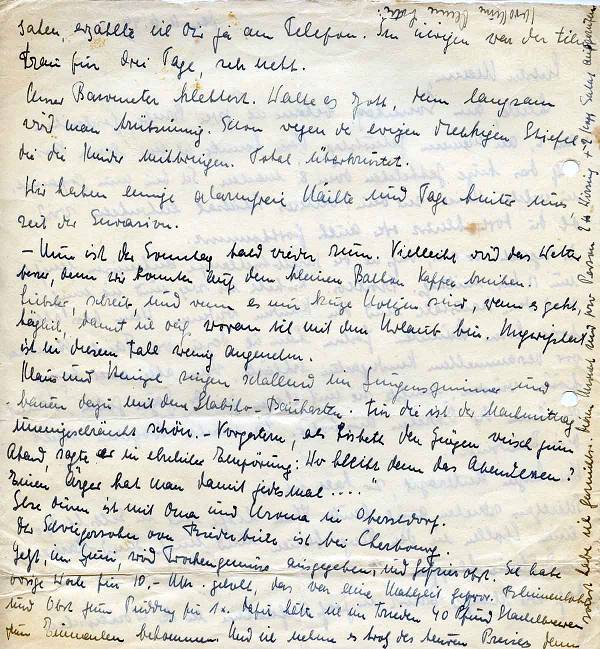 haben, erzählte ich Dir ja am Telefon. Im übrigen war der
Frau für drei Tage, sehr nett.
Unser Barometer klettert. Walte es Gott, denn langsam
wird man trübsinnig. Schon wegen der ewigen dreckigen Stiefel
die die Kinder mitbringen. Total überkrustet.
Wir haben einige alarmfreie Nächte und Tage hinter uns
seit der Invasion.
– Nun ist der Sonntag bald wieder rum. Vielleicht wird das Wetter
besser, denn wir konnten auf dem kleinen Balkon Kaffee trinken.
Liebster, schreib, und wenn es nur kurze Notizen sind, wenn es geht,
täglich, damit ich weiß, woran ich mit dem Urlaub bin. Ungewissheit
ist in diesem Falle wenig angenehm.
Klaus und singen schallend im Jungenszimmer und
bauen dazu mit den Stabilo-Baukasten. Für die ist der Nachmittag
uneingeschränkt schön. – Vorgestern, als Lisbeth den Jungen wusch zum
Abend, sagte er in ehrlicher Empörung: Wo bleibt denn das Abendessen?
Einen Ärger hat man damit jedesmal . . . ."
ist mit Oma und Uroma in Oberstdorf.
Der Schwiegersohn von ist bei Cherbourg.
Jetzt, im Juni, wird Trockengemüse ausgegeben, und Gefrierobst. Ich habe
vorige Woche für 10,- Mk. geholt, das war eine Mahlzeit gefror. Blumenkohl
und Obst zum Pudding für 1x. Dafür hätte ich im Frieden 40 Pfund Stachelbeeren
zum Einmachen bekommen. Und ich nehme es trotz des teuren Preises, denn